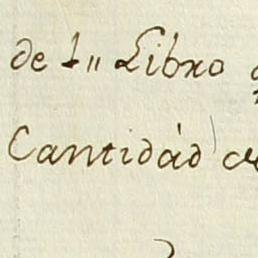 de 1" Libro
Cantidad